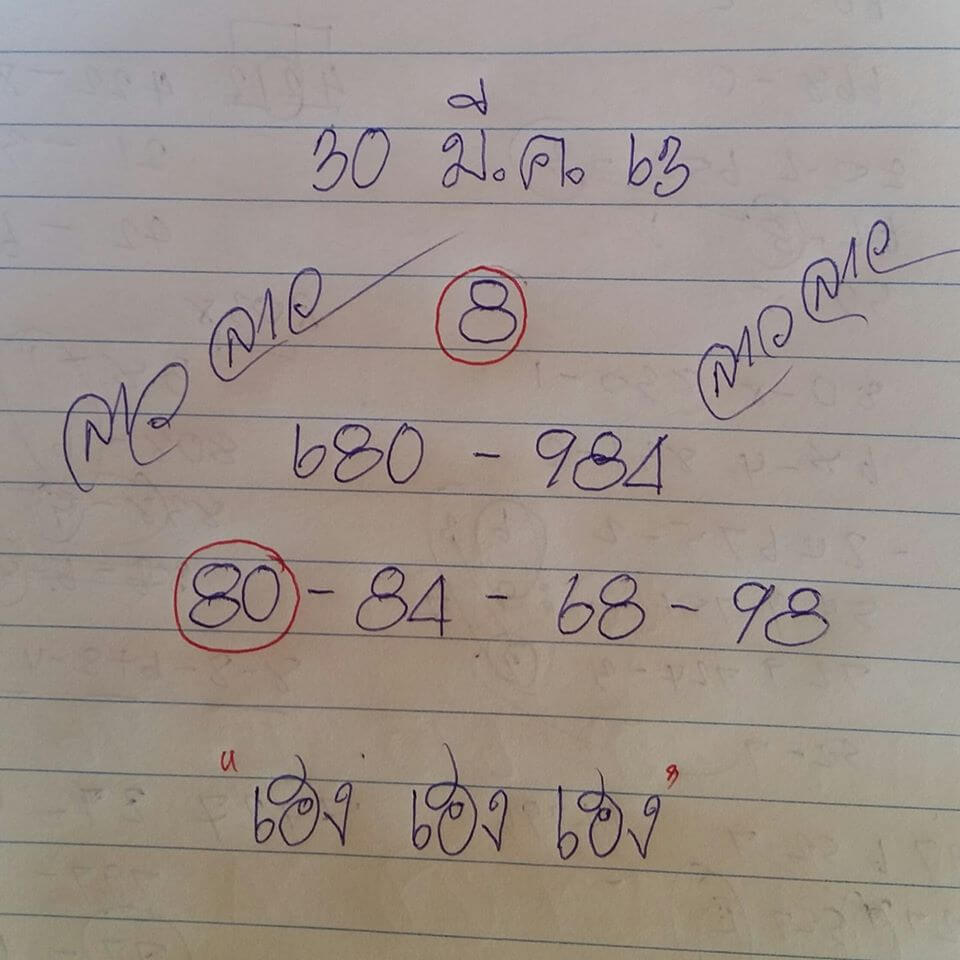 30 มี.ค. 63
8
ลาว ลาว
ลาว ลาว
680 - 984
80 - 84 - 68 - 98
" เฮง เฮง เฮง "